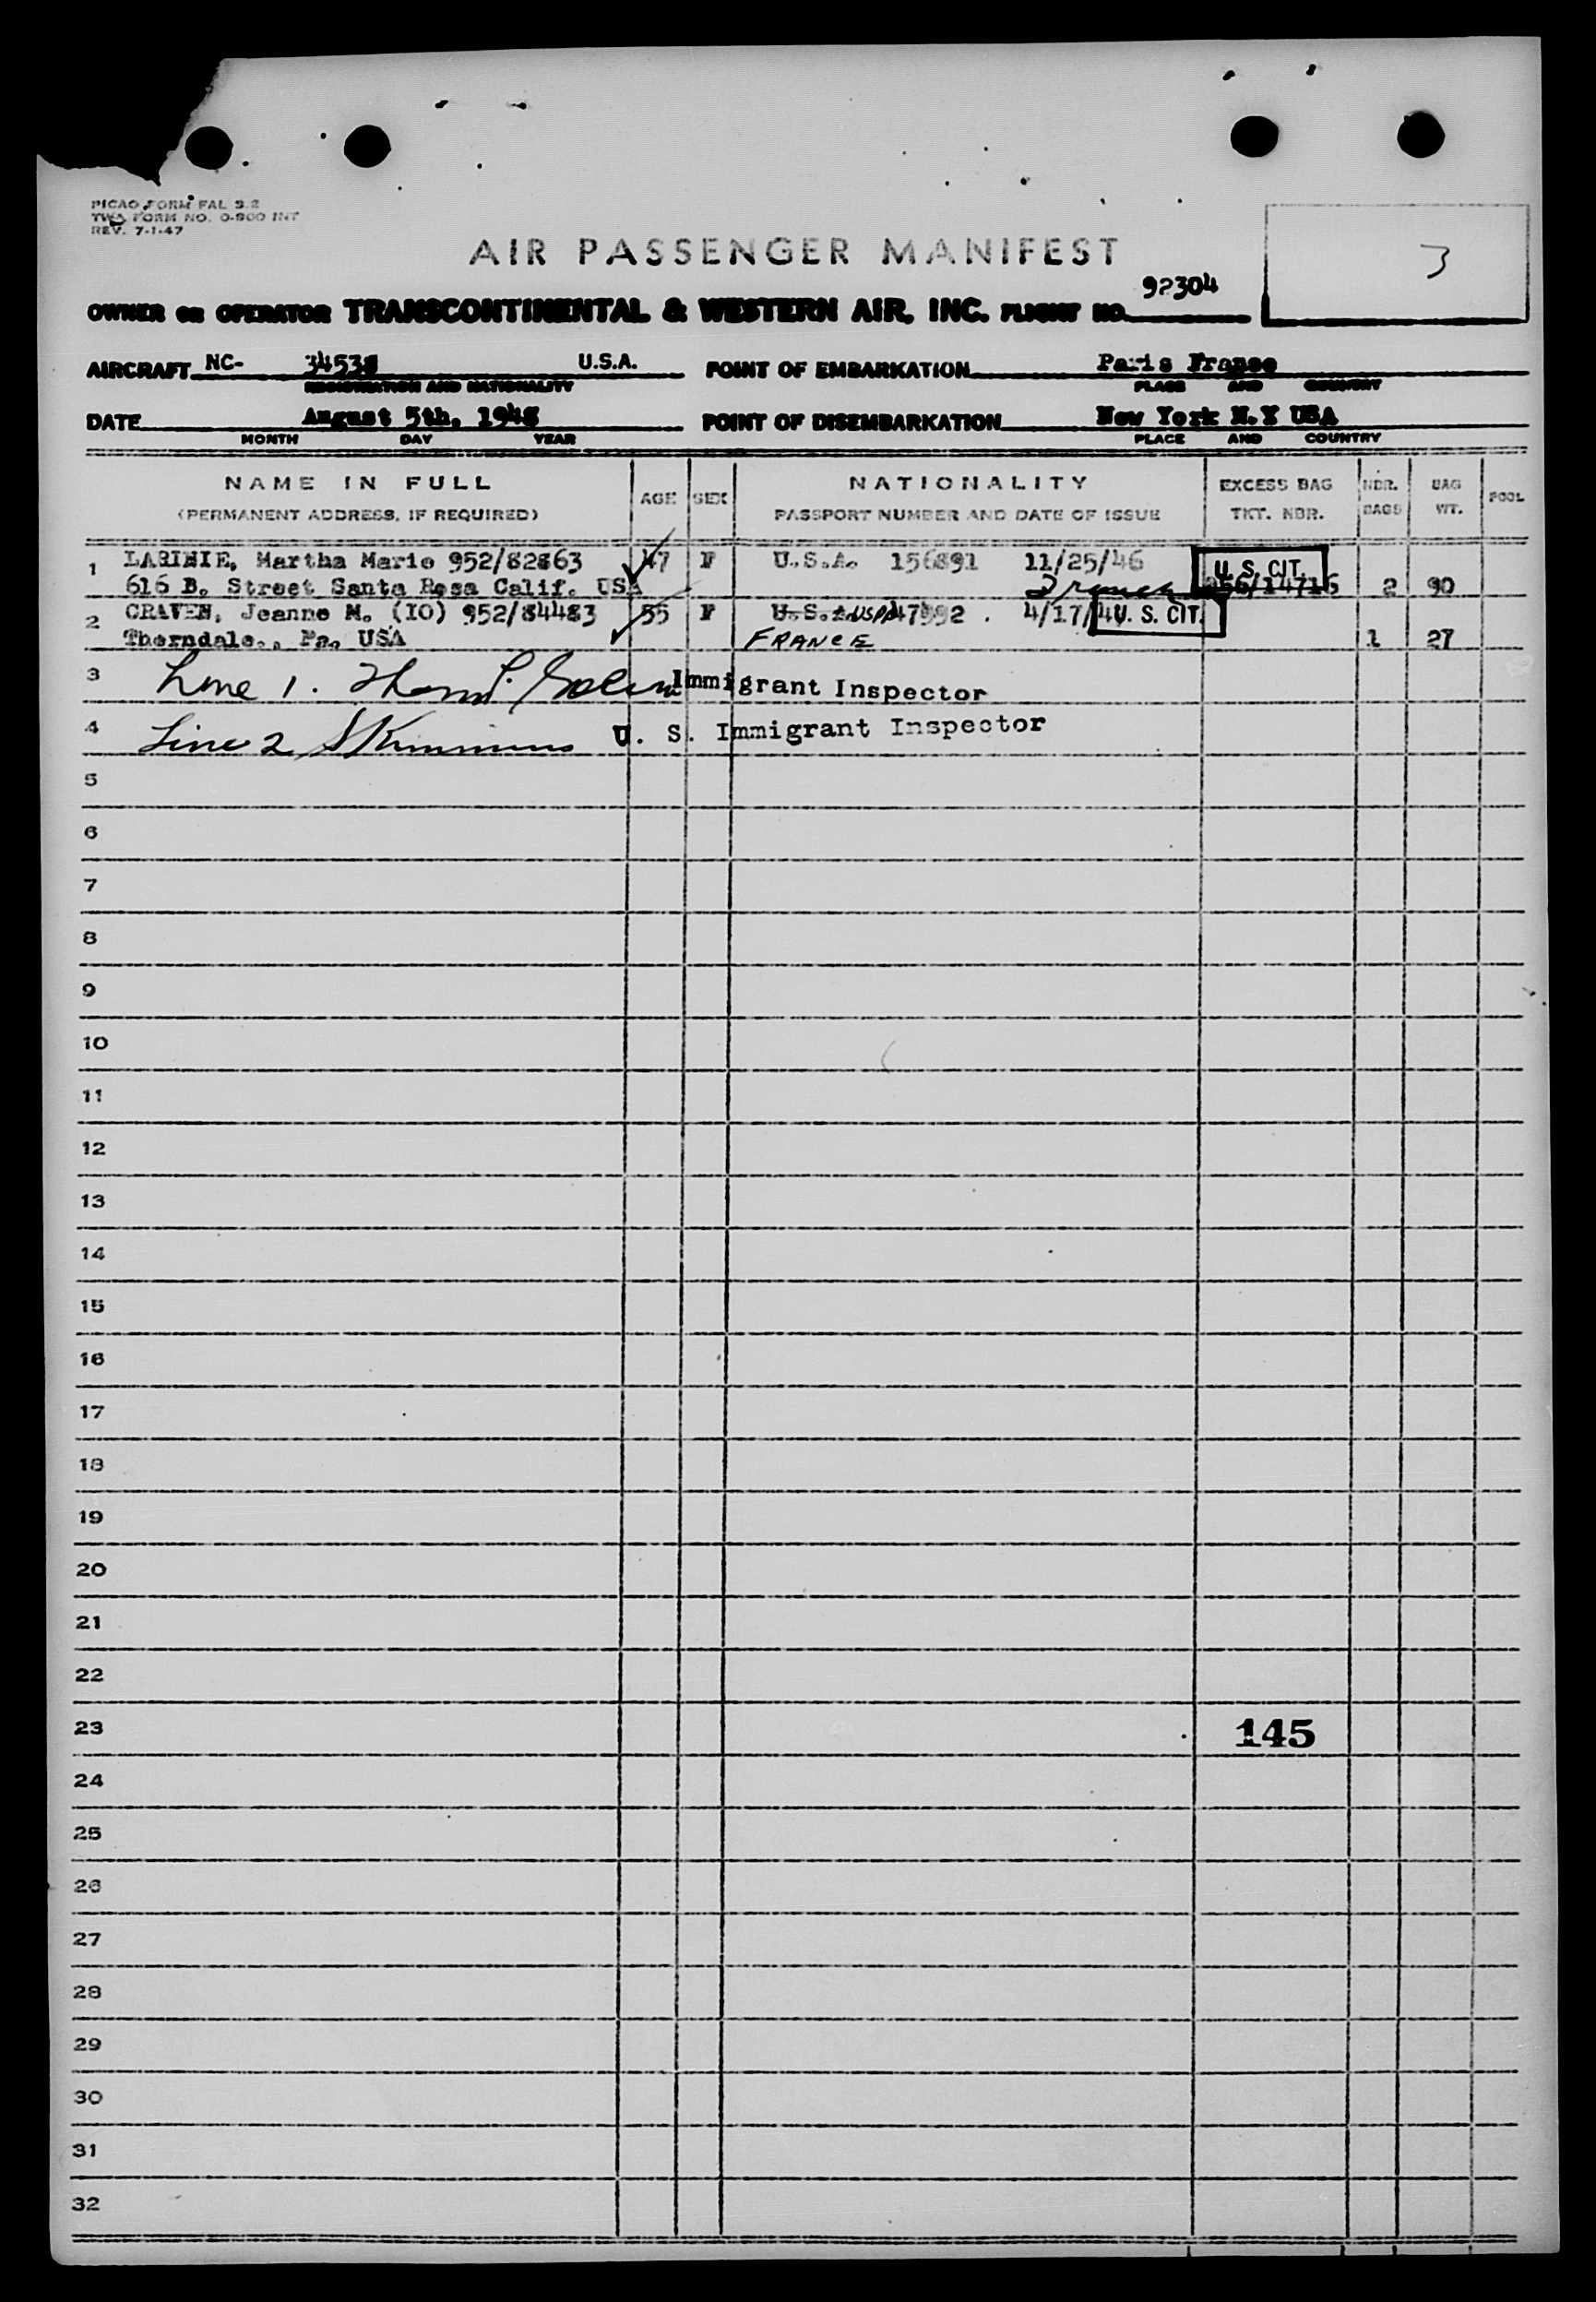 PICAO FORM FAL 3.2
TWA FORM NO. O-900 INT
REV. 7-1-47
3
AIR PASSENGER MANIFEST
OWNER OR OPERATOR TRANSCONTINENTAL & WESTERN AIR, INC. FLIGHT NO. 92304
AIRCRAFT NC- 34538 U.S.A. POINT OF EMBARKATION Paris France
REGISTRATION AND NATIONALITY PLACE AND COUNTRY
DATE August 5th, 1948 POINT OF DISEMBARKATION New York N.Y USA
MONTH DAY YEAR PLACE AND COUNTRY
NAME IN FULL AGE SEX NATIONALITY EXCESS BAG NBR. BAG POOL
(PERMANENT ADDRESS, IF REQUIRED) PASSPORT NUMBER AND DATE OF ISSUE TKT. NBR. BAGS WT.
1 Martha Marie 952/82863 47 F U.S.A. 156891 11/25/46 U. S. CIT.
616 B. Street Santa Rosa Calif. USA 2 90
2 CRAVEN, Jeanne M. (IO) 952/84483 55 F U.S. 4/17/ U. S. CIT.
Thorndale., Pa. USA FRANCE 1 27
3 Line 1. Immigrant Inspector
4 Line 2 U. S. Immigrant Inspector
5
6
7
8
9
10
11
12
13
14
15
16
17
18
19
20
21
22
23 145
24
25
26
27
28
29
30
31
32